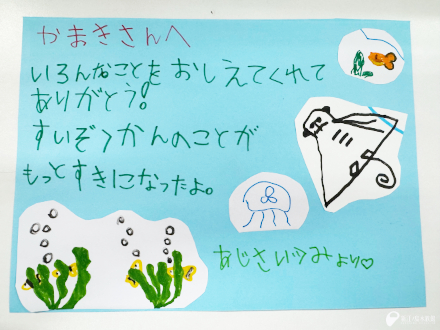 かまきさんへ
いろんなことをおしえてくれて
ありがとう!
すいぞくかんのことが
もっとすきになったよ。
あじさいぐみより♡